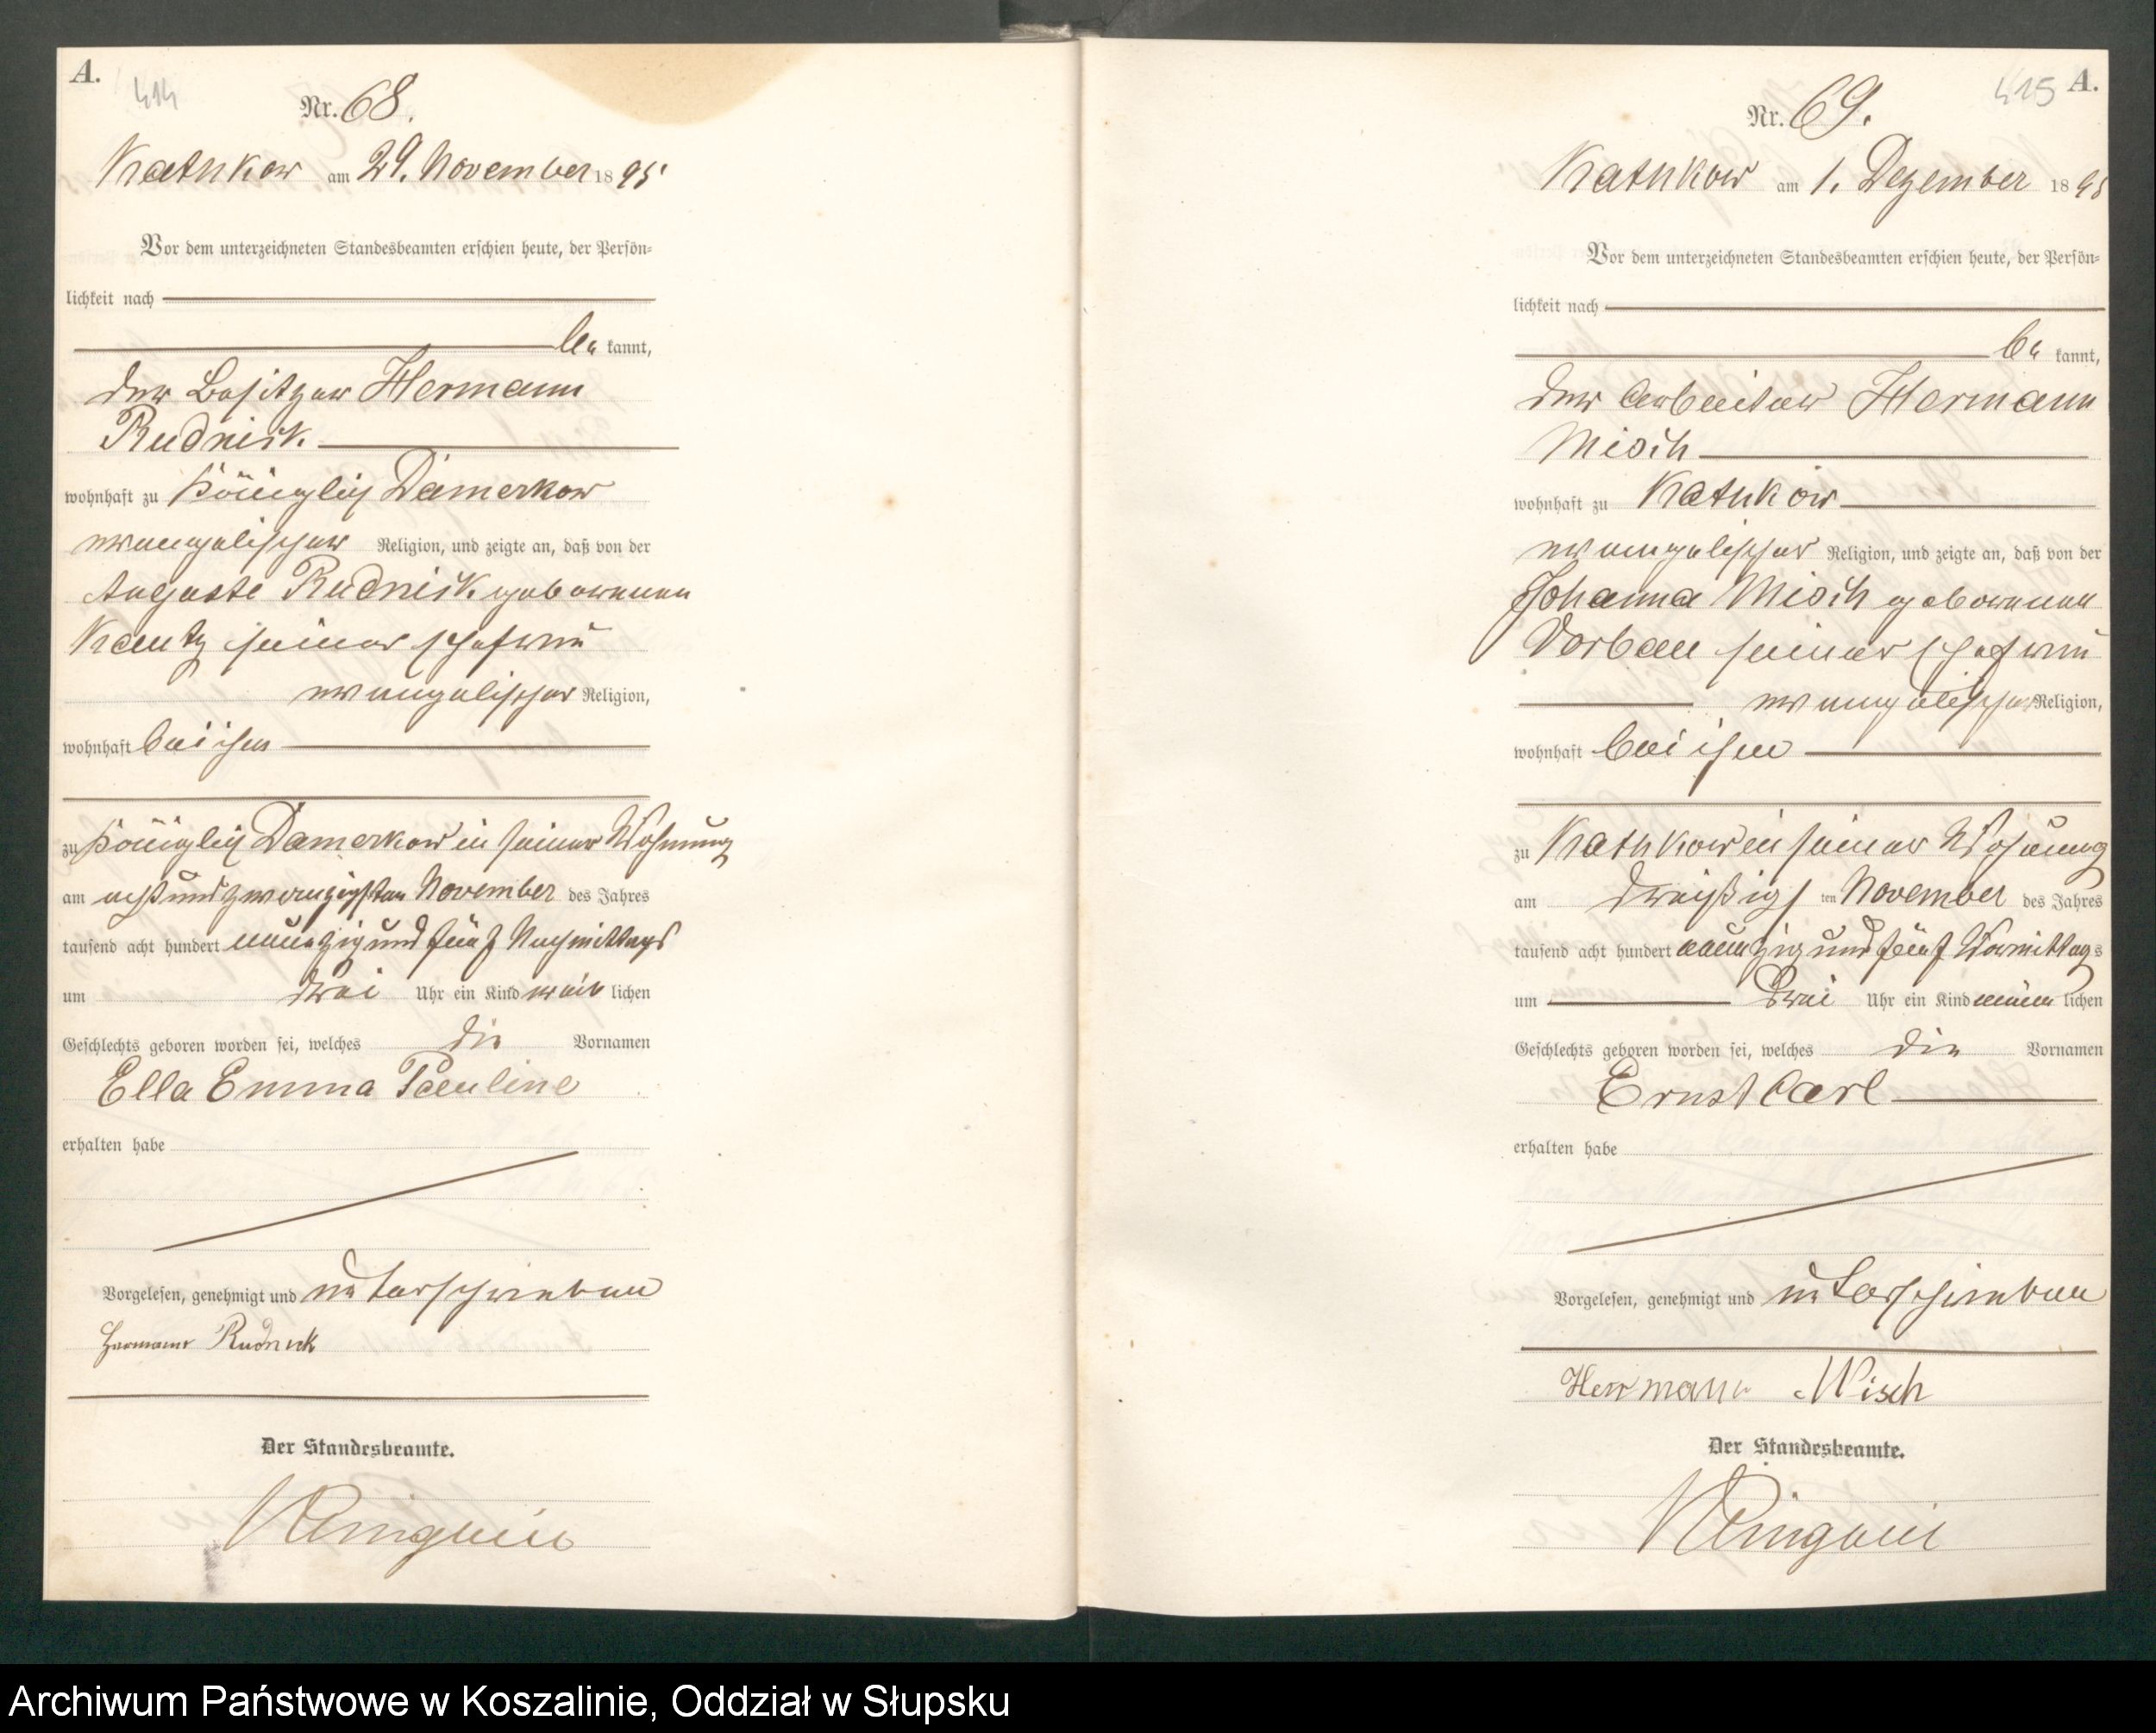 A.
414
Nr. 68.
Kathkow am 29. November 1895
Vor dem unterzeichneten Standesbeamten erschien heute, der Persön-
lichkeit nach
be kannt,
der Besitzer Hermann
Rudnick
wohnhaft zu Königlich Damerkow
evangelischer Religion, und zeigte an, daß von der
Auguste Rudnick geborenen
Kautz seiner Ehefrau
evangelischer Religion,
wohnhaft bei ihm
zu Königlich Damerkow in seiner Wohnung
am acht und zwanzigsten November des Jahres
tausend acht hundert neunzig und fünf Nachmittags
um drei Uhr ein Kind weib lichen
Geschlechts geboren worden sei, welches die Vornamen
Ella Emma Pauline
erhalten habe
Vorgelesen, genehmigt und unterschrieben
Hermann Rudnick
Der Standesbeamte.
415
A.
Nr. 69.
Kathkow am 1. Dezember 1895
Vor dem unterzeichneten Standesbeamten erschien heute, der Persön-
lichkeit nach
be kannt,
der Arbeiter Hermann
Misch
wohnhaft zu Kathkow
evangelischer Religion, und zeigte an, daß von der
Johanna Misch geborenen
Dorbau seiner Ehefrau
evangelischer Religion,
wohnhaft bei ihm
zu Kathkow in seiner Wohnung
am dreißigs ten November des Jahres
tausend acht hundert neunzig und fünf Vormittags
um drei Uhr ein Kind männ lichen
Geschlechts geboren worden sei, welches die Vornamen
Ernst Carl
erhalten habe
Vorgelesen, genehmigt und unterschrieben
Herrmann Misch
Der Standesbeamte.
Archiwum Państwowe w Koszalinie, Oddział w Słupsku